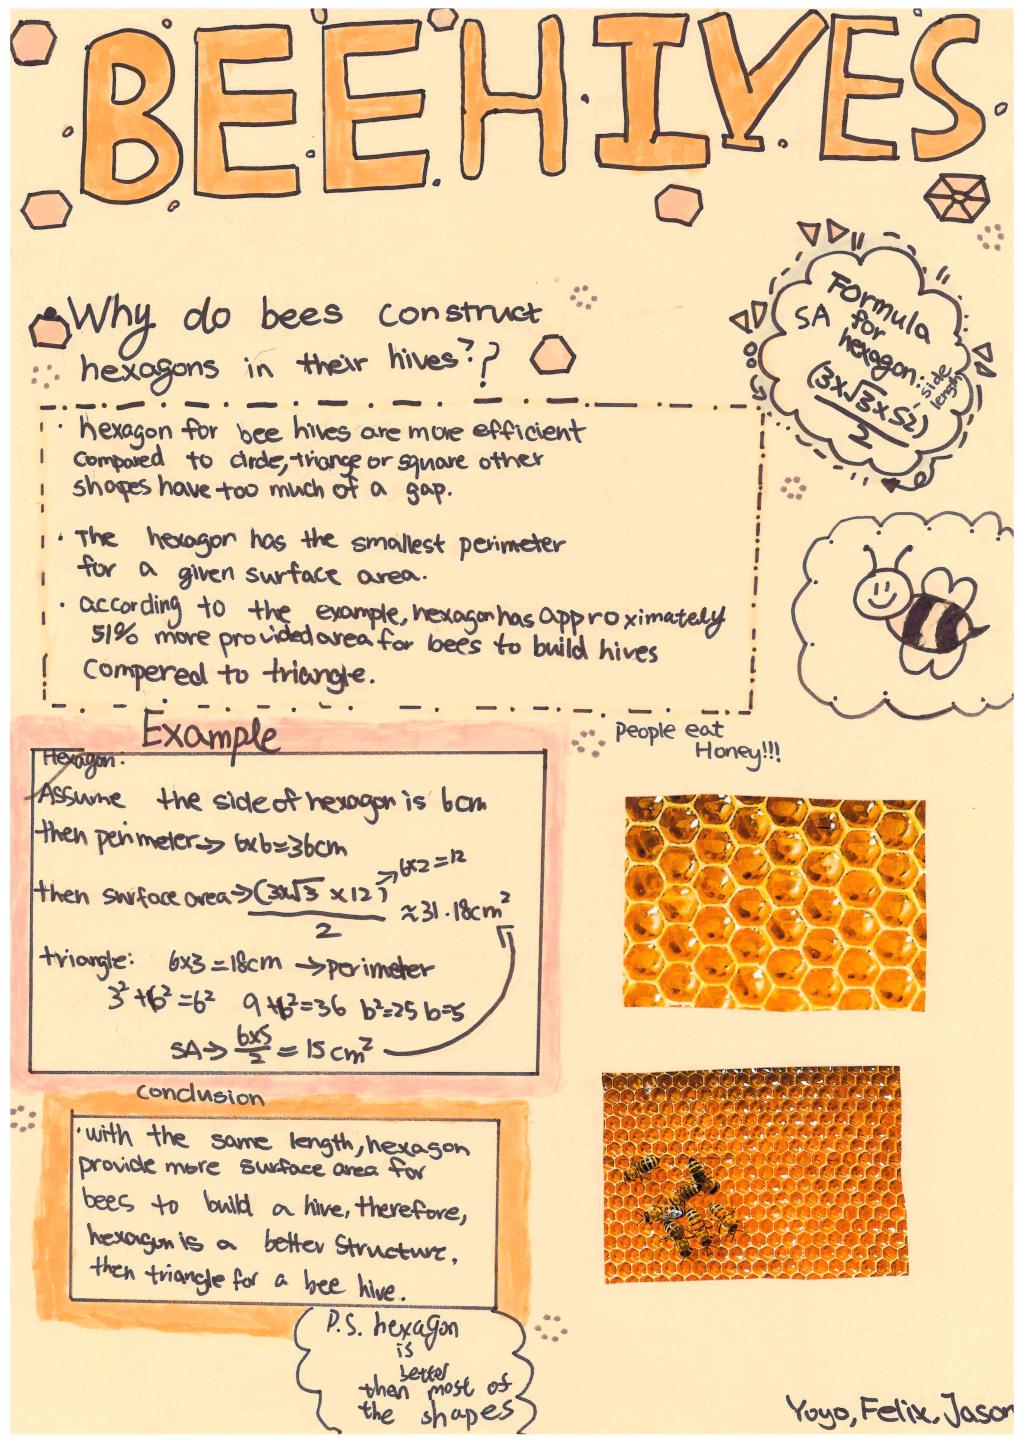 BEEHIVES
Why do bees construct
hexagons in their hives??
Formula
SA for
hexagon:
side
length
(3x√3xS2)
2
· hexagon for bee hives are more efficient
compared to circle, triange or square other
shapes have too much of a gap.
· The hexagon has the smallest perimeter
for a given surface area.
· according to the example, hexagon has approximately
51% more provided area for bees to build hives
compered to triangle.
People eat
Honey!!!
Example
Hexagon:
Assume the side of hexagon is 6cm
then perimeter→ 6x6=36cm
6x2=12
then surface area→ (3x√3 x12) ≈31.18cm²
2
triangle: 6x3=18cm →perimeter
3²+b²=6² 9+b²=36 b²=25 b=5
SA→ 6x5/2 = 15cm²
conclusion
· with the same length, hexagon
provide more surface area for
bees to build a hive, therefore,
hexagon is a better structure.
then triangle for a bee hive.
P.S. hexagon
is
better
than most of
the shapes
Yoyo, Felix, Jason